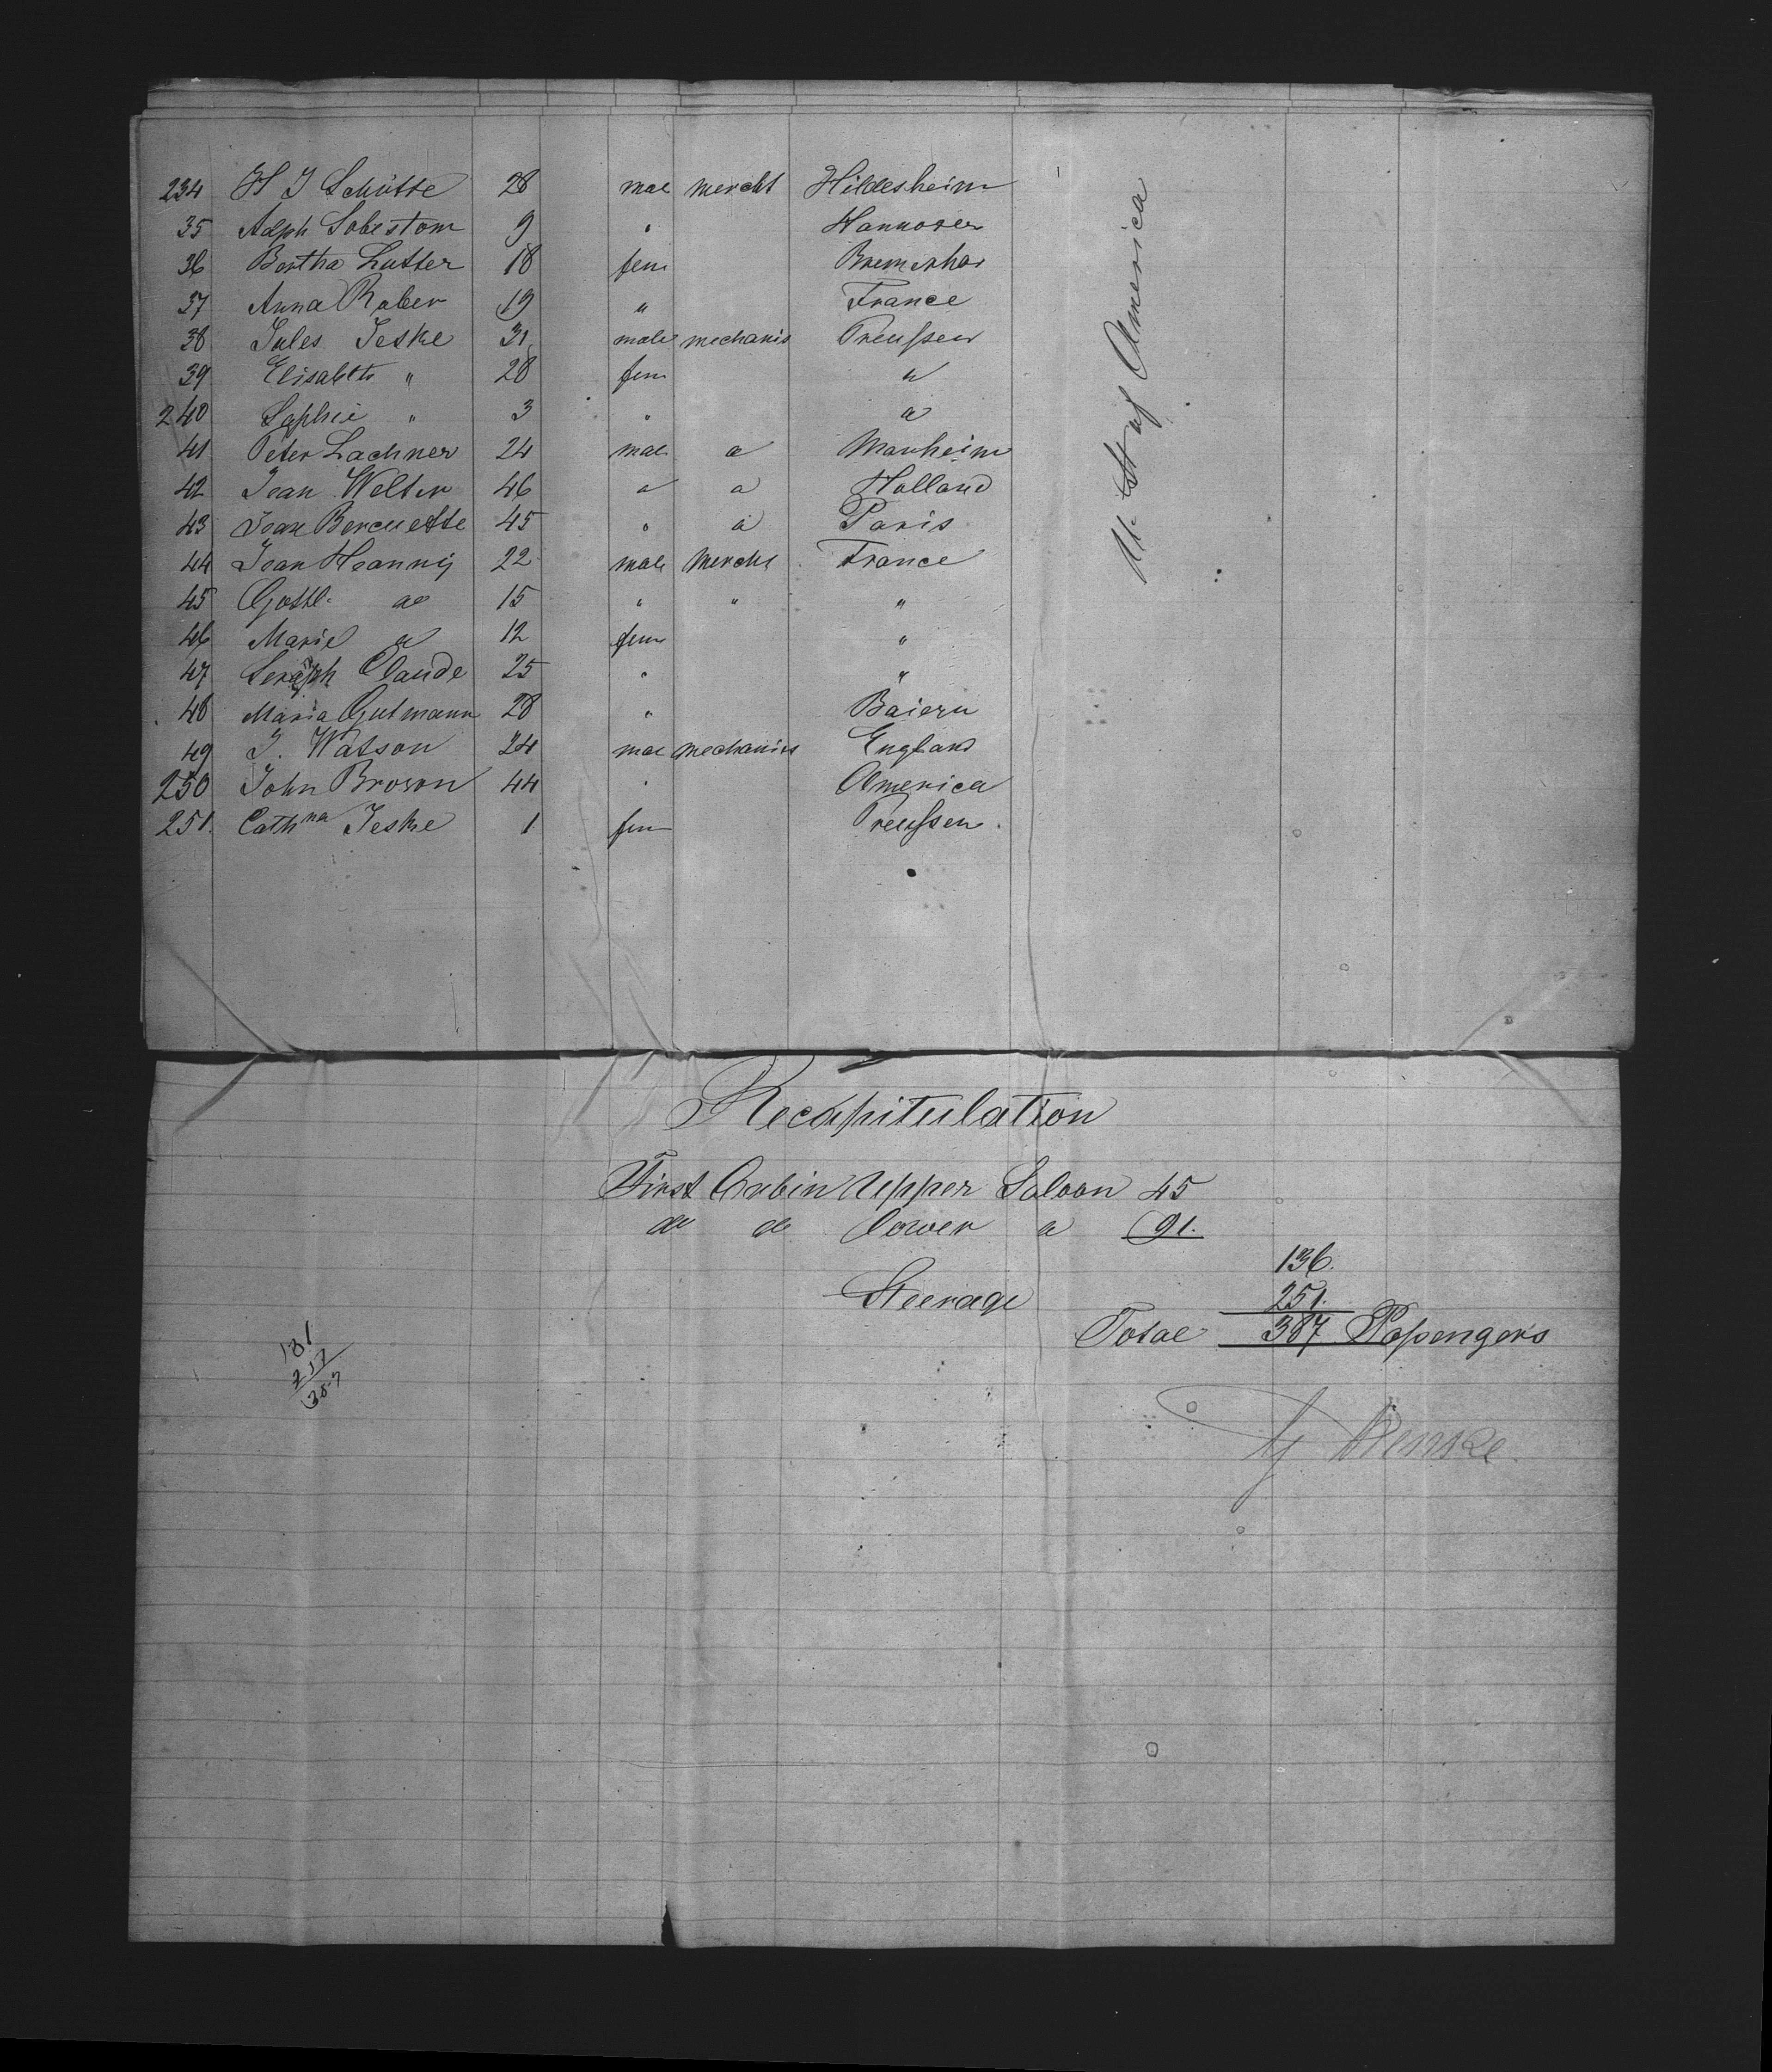 234 H J Schütte 28 male mercht Hildesheim
35 Adph Sobestom 9 " Hannover
36 Bertha Lutter 18 fem Bremerhav
37 Anna Raber 19 " France
38 Jules Jeske 31 male mechanis Preussen
39 Elisabeth " 28 fem "
240 Sophie " 3 " "
41 Peter Lachner 24 male do Manheim
42 Jean Welter 46 do do Holland
43 Jean Bercuette 45 " do Paris
44 Jean Heanny 22 male Mercht France
45 Gottl. do 15 " " "
46 Marie do 12 fem "
47 Seraph Claude 25 " "
48 Maria Gutmann 28 " Baiern
49 J. Watson 24 male mechanics England
250 John Brown 44 " America
251. Cathna Jeske 1 fem Preussen.
U. St of America
Recapitulation
First Cabin Upper Saloon 45
do do Lower do 91.
136.
Steerage 251.
Total 387 Passengers